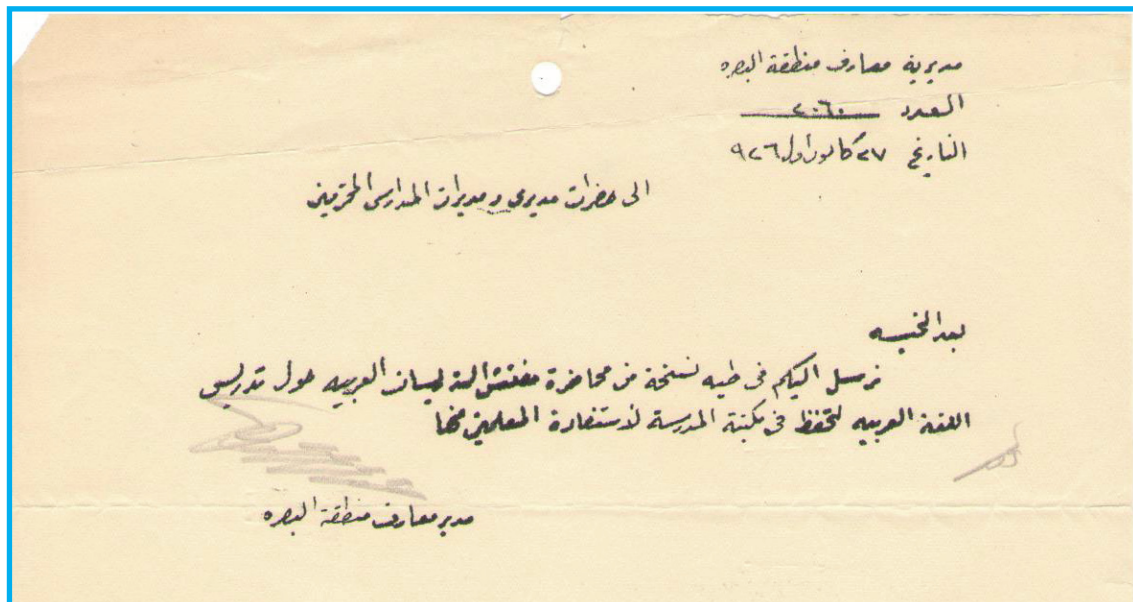 مديرية معارف منطقة البصره
العدد ٢٠٦٠
التاريخ ٢٧ كانون اول ٩٢٦
الى حضرات مديري و مديرات المدارس المحترمين
بعد التحيه
نرسل اليكم في طيه نسخة من محاضرة مفتش التدريسات العربيه حول تدريس
اللغة العربيه لتحفظ في مكتبة المدرسة لاستفادة المعلمين منها
مدير معارف منطقة البصره